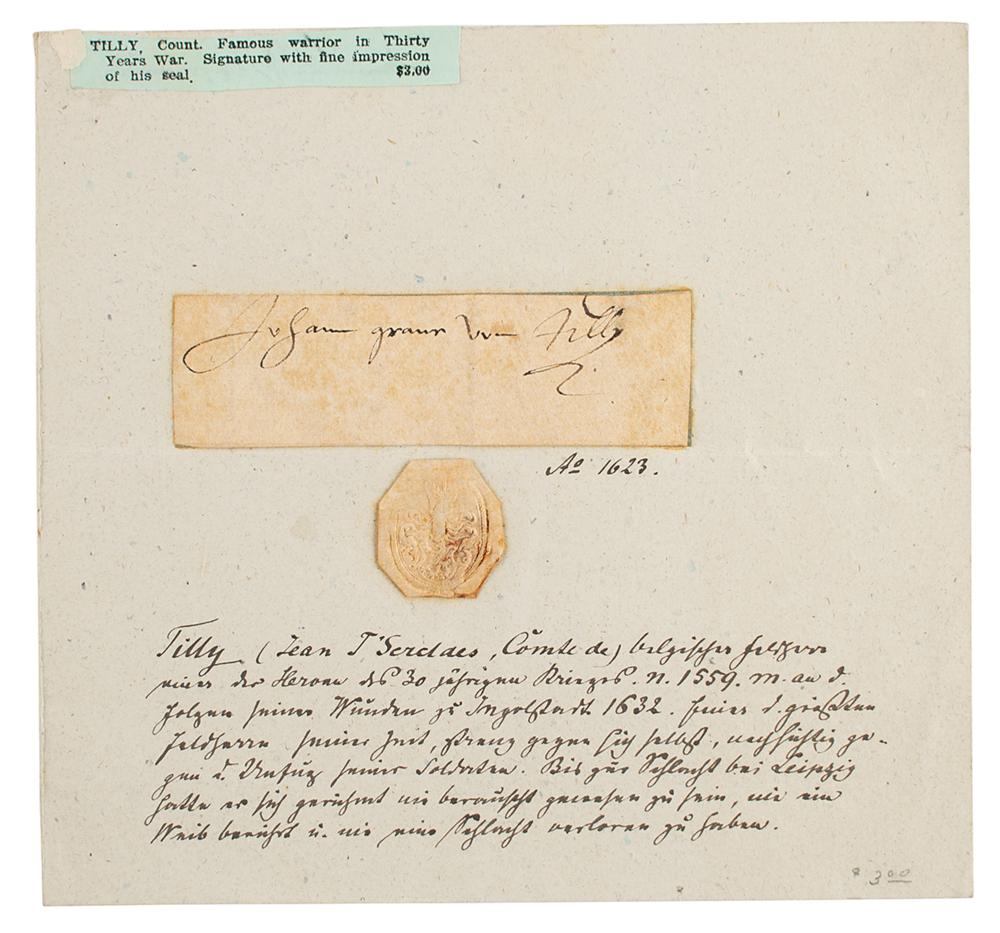 TILLY, Count. Famous warrior in Thirty
Years War. Signature with fine impression
of his seal. $3.00
Johann graue von Tilly
Ao 1623.
Tilly (Jean T'Serclaes, Comte de) belgischer Feldherr
einer der Heroen des 30 jährigen Krieges. n. 1559. m. an d.
Folgen seiner Wunden zu Ingolstadt 1632. Einer d. größten
Feldherrn seiner Zeit, streng gegen sich selbst, nachsichtig ge-
gen d. Unfug seiner Soldaten. Bis zur Schlacht bei Leipzig
hatte er sich gerühmt nie berauscht gewesen zu sein, nie ein
Weib berührt u. nie eine Schlacht verloren zu haben.
$ 3.00